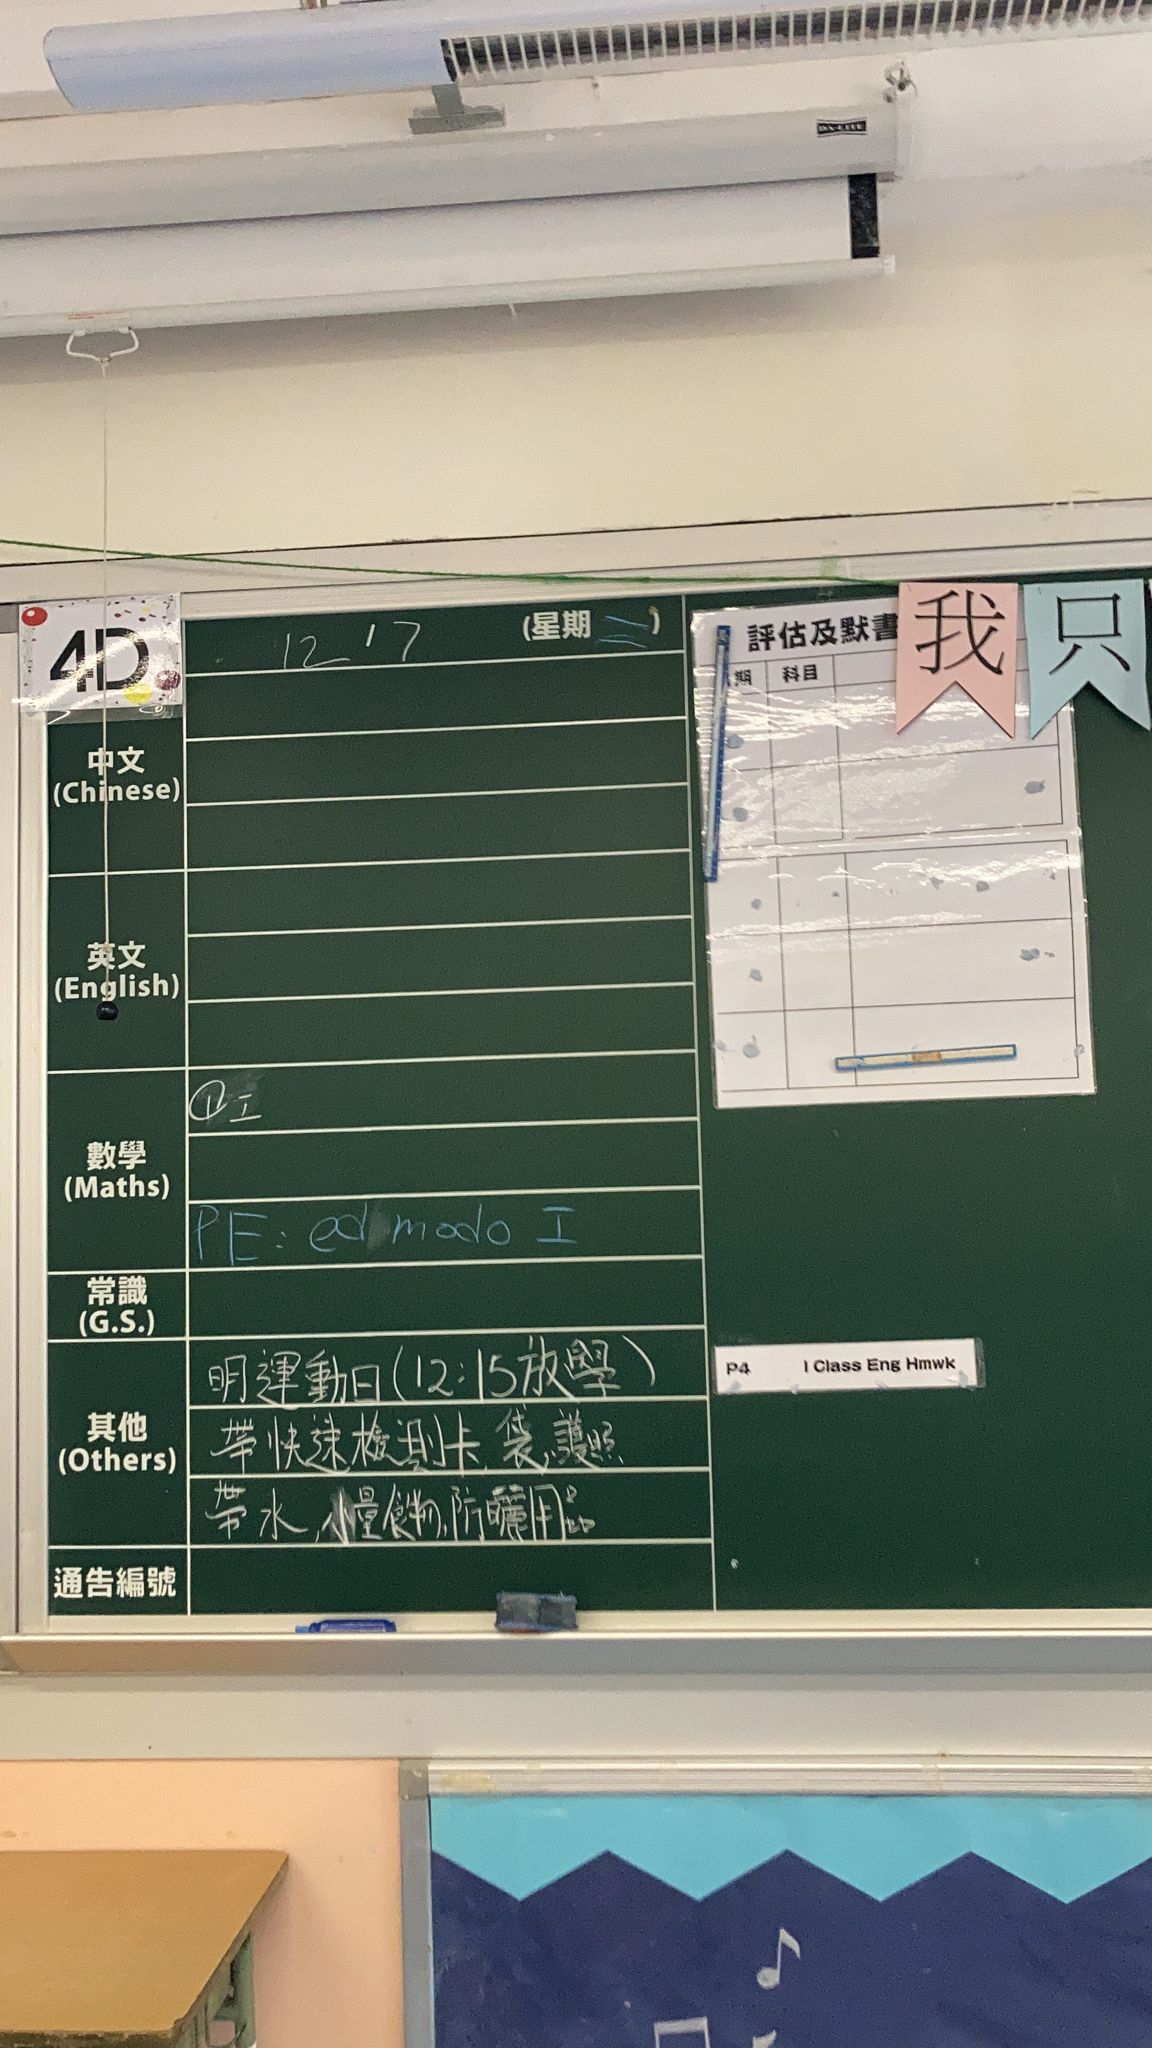 4D
12 17 (星期二)
評估及默書
我只
期 科目
中文
(Chinese)
英文
(English)
數學
(Maths)
① I
PE: edmodo I
常識
(G.S.)
其他
(Others)
明運動日(12:15放學)
帶快速檢測卡, 袋, 護照
帶水, 小量食物, 防曬用品
P4 I Class Eng Hmwk
通告編號